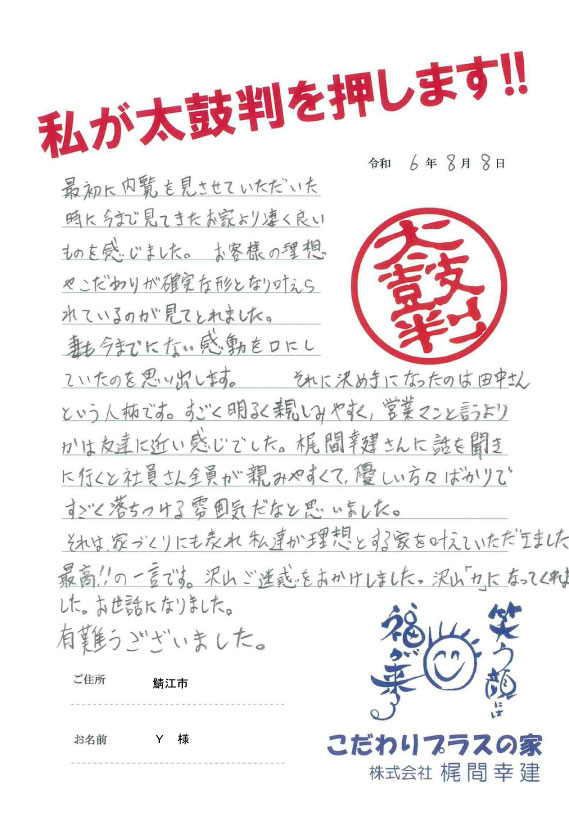 私が太鼓判を押します!!
令和 6年 8月 8日
最初に内覧を見させていただいた
時に今まで見てきたお家より凄く良い
ものを感じました。 お客様の理想
やこだわりが確実な形となり叶えら
れているのが見てとれました。
妻も今までにない感動を口にし
ていたのを思い出します。 それに決めきになったのは田中さん
という人柄です。すごく明るく親しみやすく、営業マンと言うより
かは友達に近い感じでした。梶間幸建さんに話を聞き
に行くと社員さん全員が親みやすくて、優しい方々ばかりで
すごく落ちつける雰囲気だなと思いました。
それは、家づくりにも表れ私達が理想とする家を叶えていただきました
最高!!の一言です。沢山ご迷惑をおかけしました。沢山「力」になってくれま
した。お世話になりました。
有難うございました。
太鼓判
笑う顔には
福が来る
ご住所 鯖江市
お名前 Y 様
こだわりプラスの家
株式会社 梶間幸建